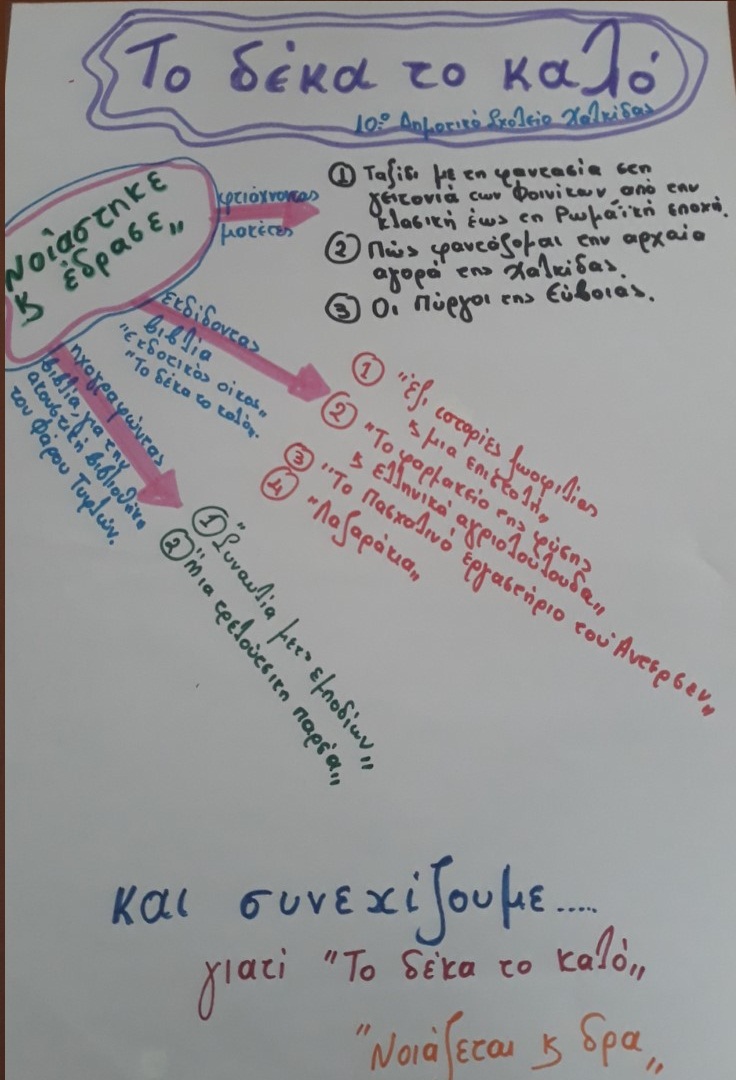 Το δέκα το καλό
10ο Δημοτικό Σχολείο Χαλκίδας
Νοιάστηκε
ϗ έδρασε,,
φτιάχνοντας
μακέτες
① Ταξίδι με τη φαντασία στη
γειτονιά των Φοινίκων από την
κλασική έως τη Ρωμαϊκή εποχή.
② Πώς φαντάζομαι την αρχαία
αγορά της Χαλκίδας.
③ Οι Πύργοι της Εύβοιας.
εκδίδοντας
βιβλία
"εκδοτικός οίκος,,
"Το δέκα το καλό,,.
① "Έξι ιστορίες ζωοφιλίας
ϗ μια επιστολή,,
② "Το φαρμακείο της φύσης
ϗ ελληνικά αγριολούλουδα,,
③ "Το πασχαλινό εργαστήριο του Άντερσεν,,
④ "Λαζαράκια,,
ηχογραφώντας
βιβλία για την
ακουστική βιβλιοθήκη
του Φάρου Τυφλών.
① "Συναυλία μετ' εμποδίων,,
② "Μια τρελούτσικη παρέα,,
και συνεχίζουμε.....
γιατί "Το δέκα το καλό,,
"Νοιάζεται ϗ δρα,,